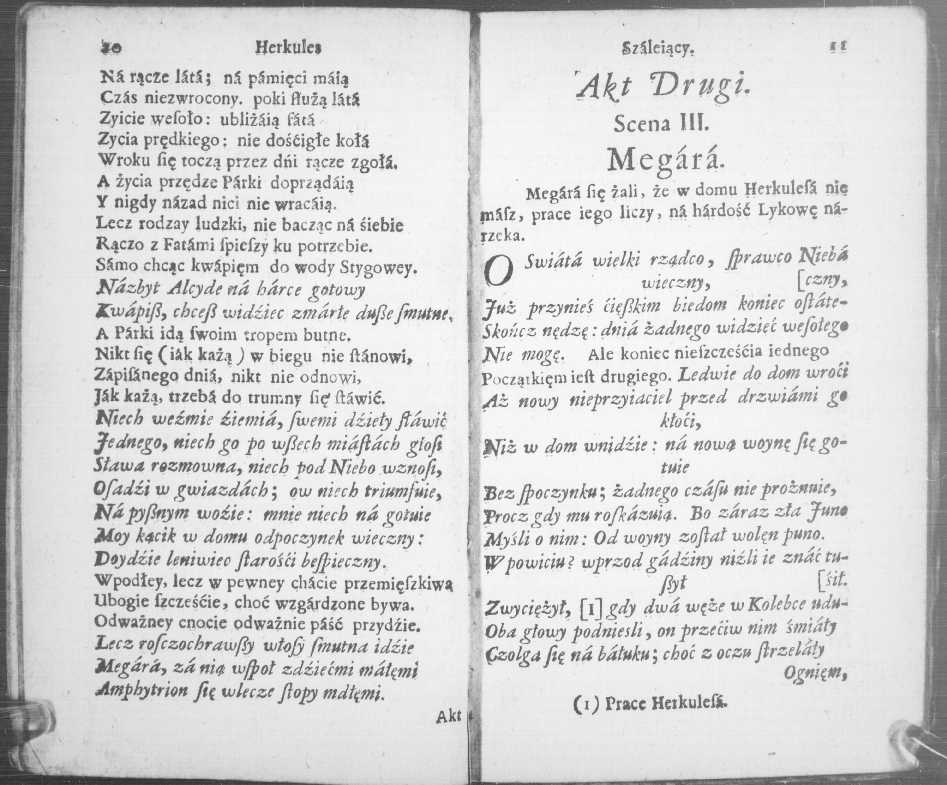 20 Herkules
Ná rącze látá; ná pámięci máią
Czás niezwrocony. poki ſłużą látá
Zyicie weſoło: ubliżáią ſátá
Zycia prędkiego; nie dośćigłe kołá
Wroku ſię toczą przez dńi rącze zgołá.
A życia przędze Párki doprządáią
Y nigdy názad nici nie wracáią.
Lecz rodzay ludzki, nie bacząc ná śiebie
Rączo z Fatámi ſpieſzy ku potrzebie.
Sámo chcąc kwápięm do wody Stygowey.
Názbyt Alcyde ná hárce gotowy
Kwápiß, chceß widźiec zmárłe duße ſmutne,
A Párki idą ſwoim tropem butne.
Nikt ſię (iák każą) w biegu nie ſtánowi,
Zápiſánego dniá, nikt nie odnowi,
Ják każą, trzebá do trumny ſię ſtáwić.
Niech weźmie źiemiá, ſwemi dźieły ſłáwić
Jednego, niech go po wßech miáſtách głoſi
Sława rozmowna, niech pod Niebo wznoſi,
Oſadźi w gwiazdách; ow niech triumfuie,
Ná pyßnym woźie: mnie niech ná gotuie
Moy kącik w domu odpoczynek wieczny:
Doydźie leniwiec ſtarośći beſpieczny.
Wpodłey, lecz w pewney chácie przemięſzkiwa
Ubogie ſzcześćie, choć wzgárdzone bywa.
Odważney cnocie odważnie páść przydźie.
Lecz roſczochrawßy włoſy ſmutna idźie
Megárá, zá nią wſpoł zdźiećmi máłęmi
Amphytrion ſię wlecze ſtopy mdłęmi.
Akt
Száleiący. 11
Akt Drugi.
Scena III.
Megárá.
Megárá ſię żali, że w domu Herkuleſá nie
máſz, prace iego liczy, ná hárdość Lykowę ná-
rzeka.
O Swiátá wielki rządco, ſprawco Niebá
wieczny, [czny,
Już przynieś ćięſzkim biedom koniec oſtáte-
Skończ nędzę: dniá żadnego widzieć weſołego
Nie mogę. Ale koniec nieſzcześćia iednego
Początkięm ieſt drugiego. Ledwie do dom wroći
Aż nowy nieprzyiaciel przed drzwiámi go
kłoći,
Niż w dom wnidźie: ná nową woynę ſię go-
tuie
Bez ſpoczynku; żadnego czáſu nie prożnuie,
Procz gdy mu roſkázuią. Bo záraz zła Juno
Myśli o nim: Od woyny zoſtał wolęn puno.
W powiciu? wprzod gádźiny niźli ie znáć tu-
ßył [śił.
Zwyciężył, [1] gdy dwá węże w Kolebce udu-
Oba głowy podnieśli, on przećiw nim śmiáły
Czolga ſię ná báłuku; choć z oczu ſtrzeláły
Ognięm,
(1) Prace Herkuleſá.